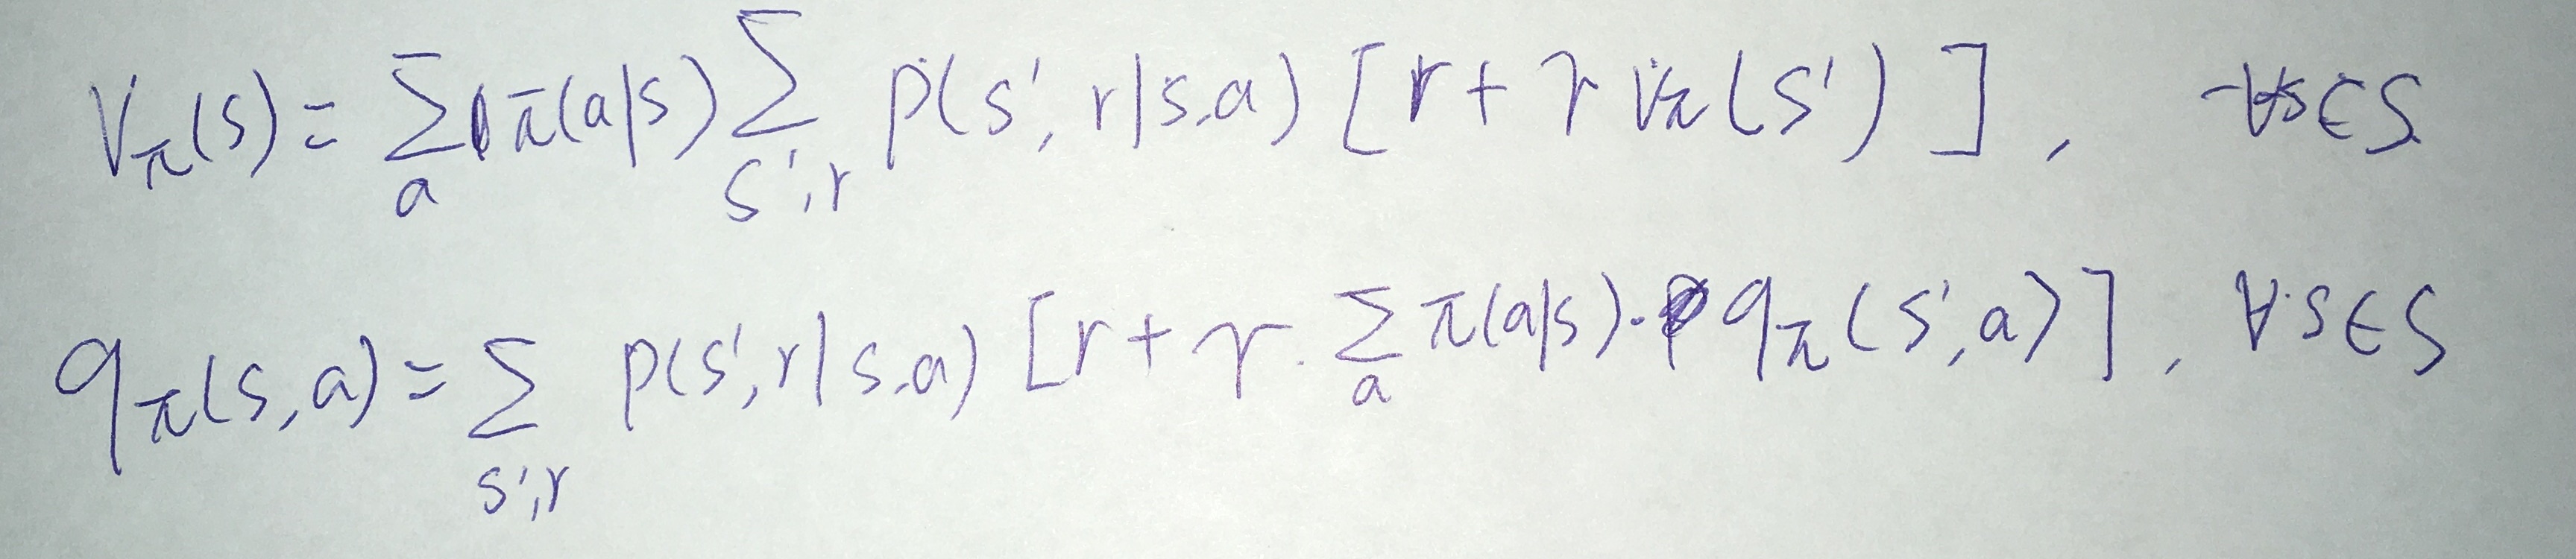 V_π(s) = Σ_a π(a|s) Σ_{s',r} p(s', r|s,a) [r + γ v_π(s')], ∀s∈S
q_π(s,a) = Σ_{s',r} p(s',r|s,a) [r + γ · Σ_a π(a|s) · q_π(s',a)], ∀s∈S